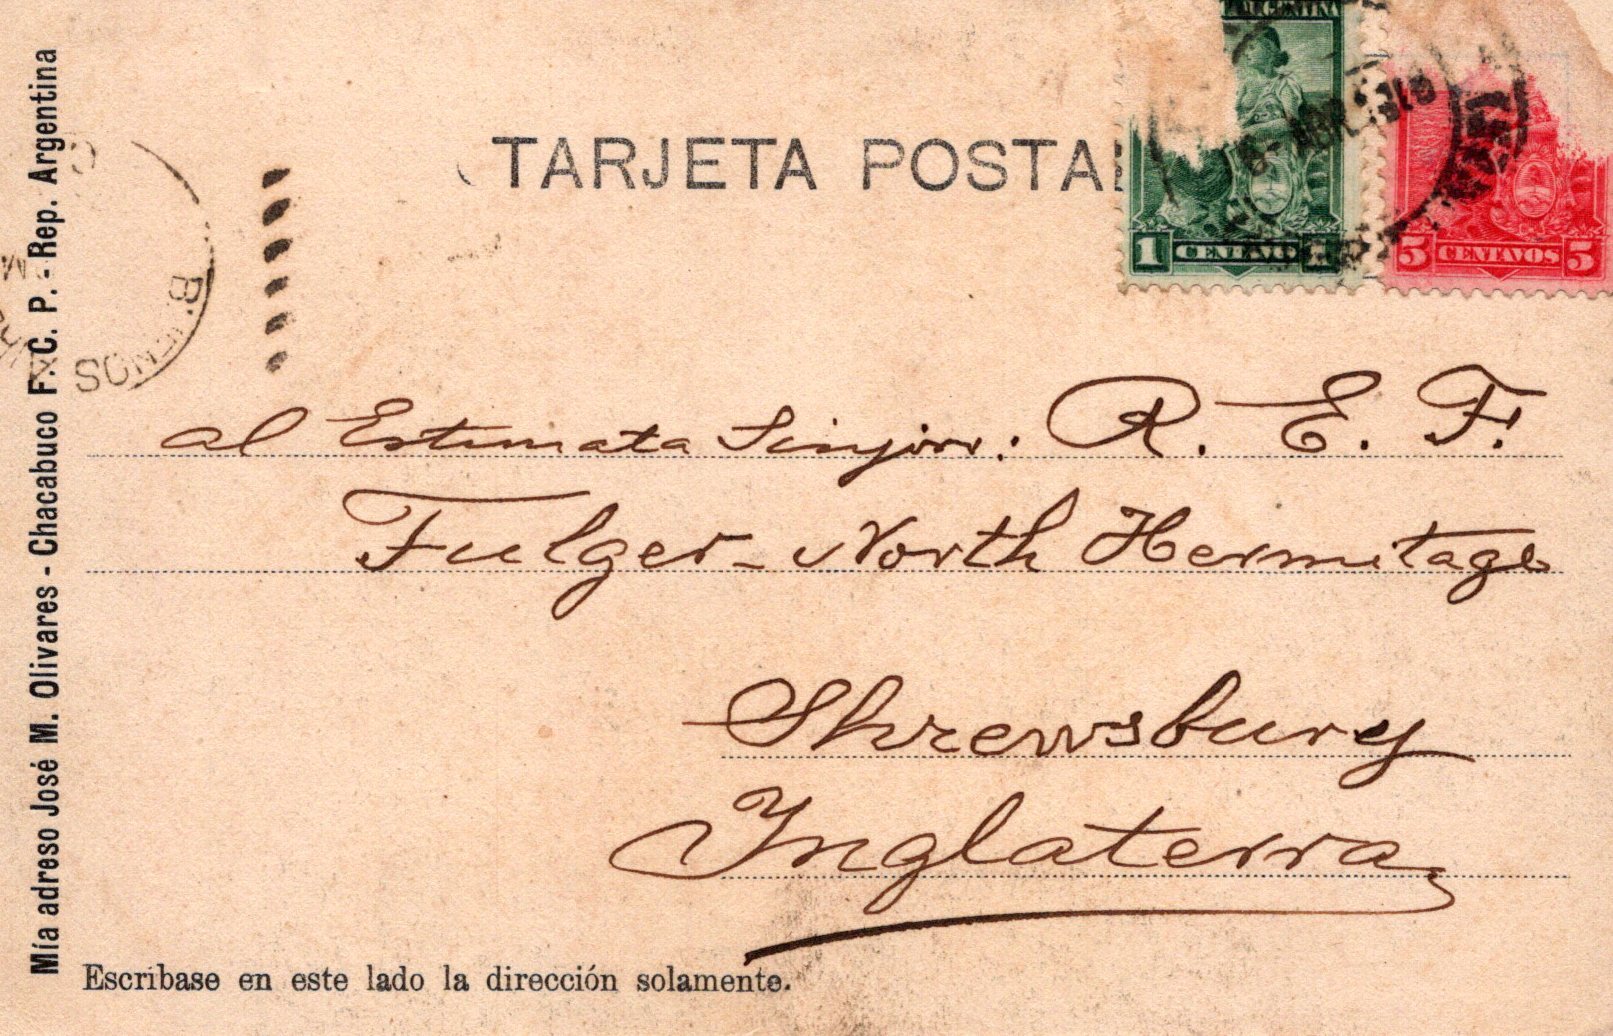 TARJETA POSTAL
ARGENTINA
1 CENTAVO
5 CENTAVOS 5
BUENOS
al Estimata Sinjoro: R. E. F.
Fulger - North Hermitage
Shrewsbury
Inglaterra
Escríbase en este lado la dirección solamente.
Mía adreso José M. Olivares - Chacabuco F. C. P. - Rep. Argentina